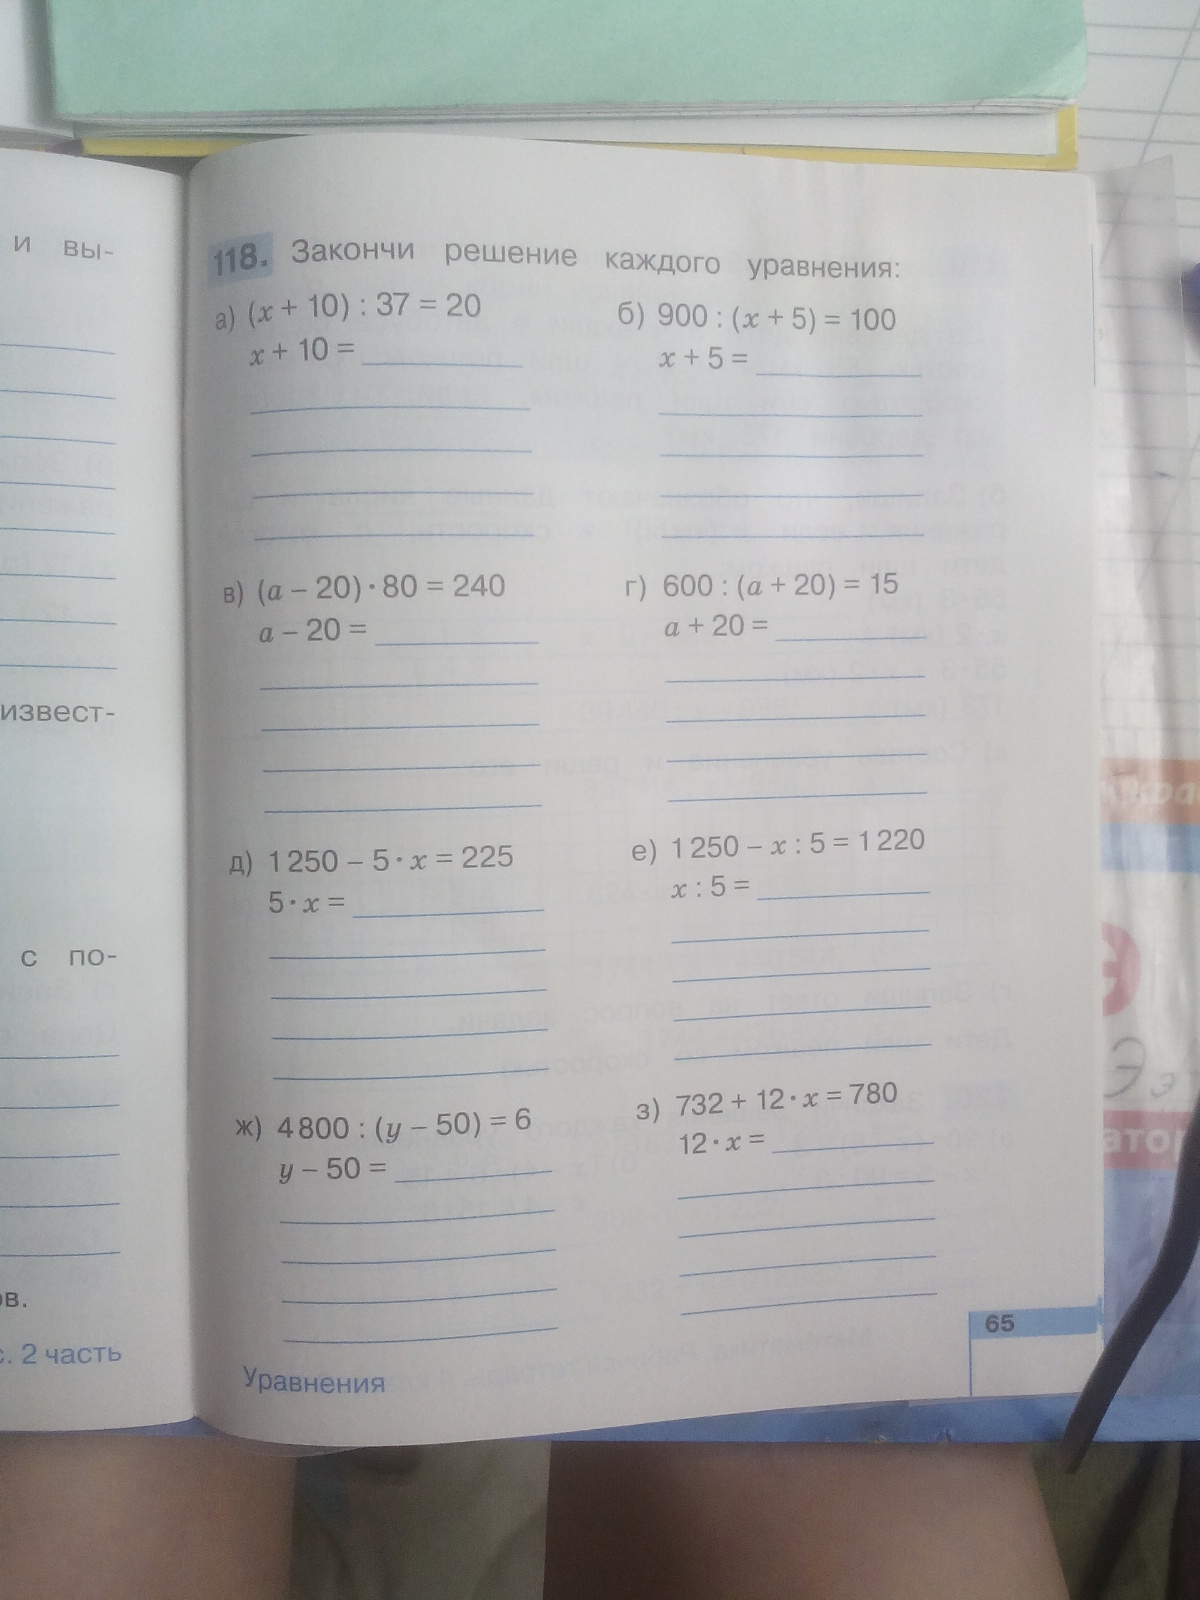 и вы-
извест-
с по-
ов.
с. 2 часть
118. Закончи решение каждого уравнения:
а) (x + 10) : 37 = 20
x + 10 =
б) 900 : (x + 5) = 100
x + 5 =
в) (a – 20) · 80 = 240
a – 20 =
г) 600 : (a + 20) = 15
a + 20 =
д) 1 250 – 5 · x = 225
5 · x =
е) 1 250 – x : 5 = 1 220
x : 5 =
ж) 4 800 : (y – 50) = 6
y – 50 =
з) 732 + 12 · x = 780
12 · x =
65
Уравнения